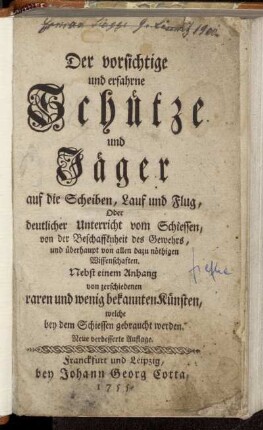 Der vorsichtige
und erfahrne
Schütze
und
Jäger
auf die Scheiben, Lauf und Flug,
Oder
deutlicher Unterricht vom Schiessen,
von der Beschaffenheit des Gewehrs,
und überhaupt von allen dazu nöthigen
Wissenschaften.
Nebst einem Anhang
von verschiedenen
raren und wenig bekannten Künsten,
welche
bey dem Schiessen gebraucht werden.
Neue verbesserte Auflage.
Franckfurt und Leipzig,
bey Johann Georg Cotta,
1755